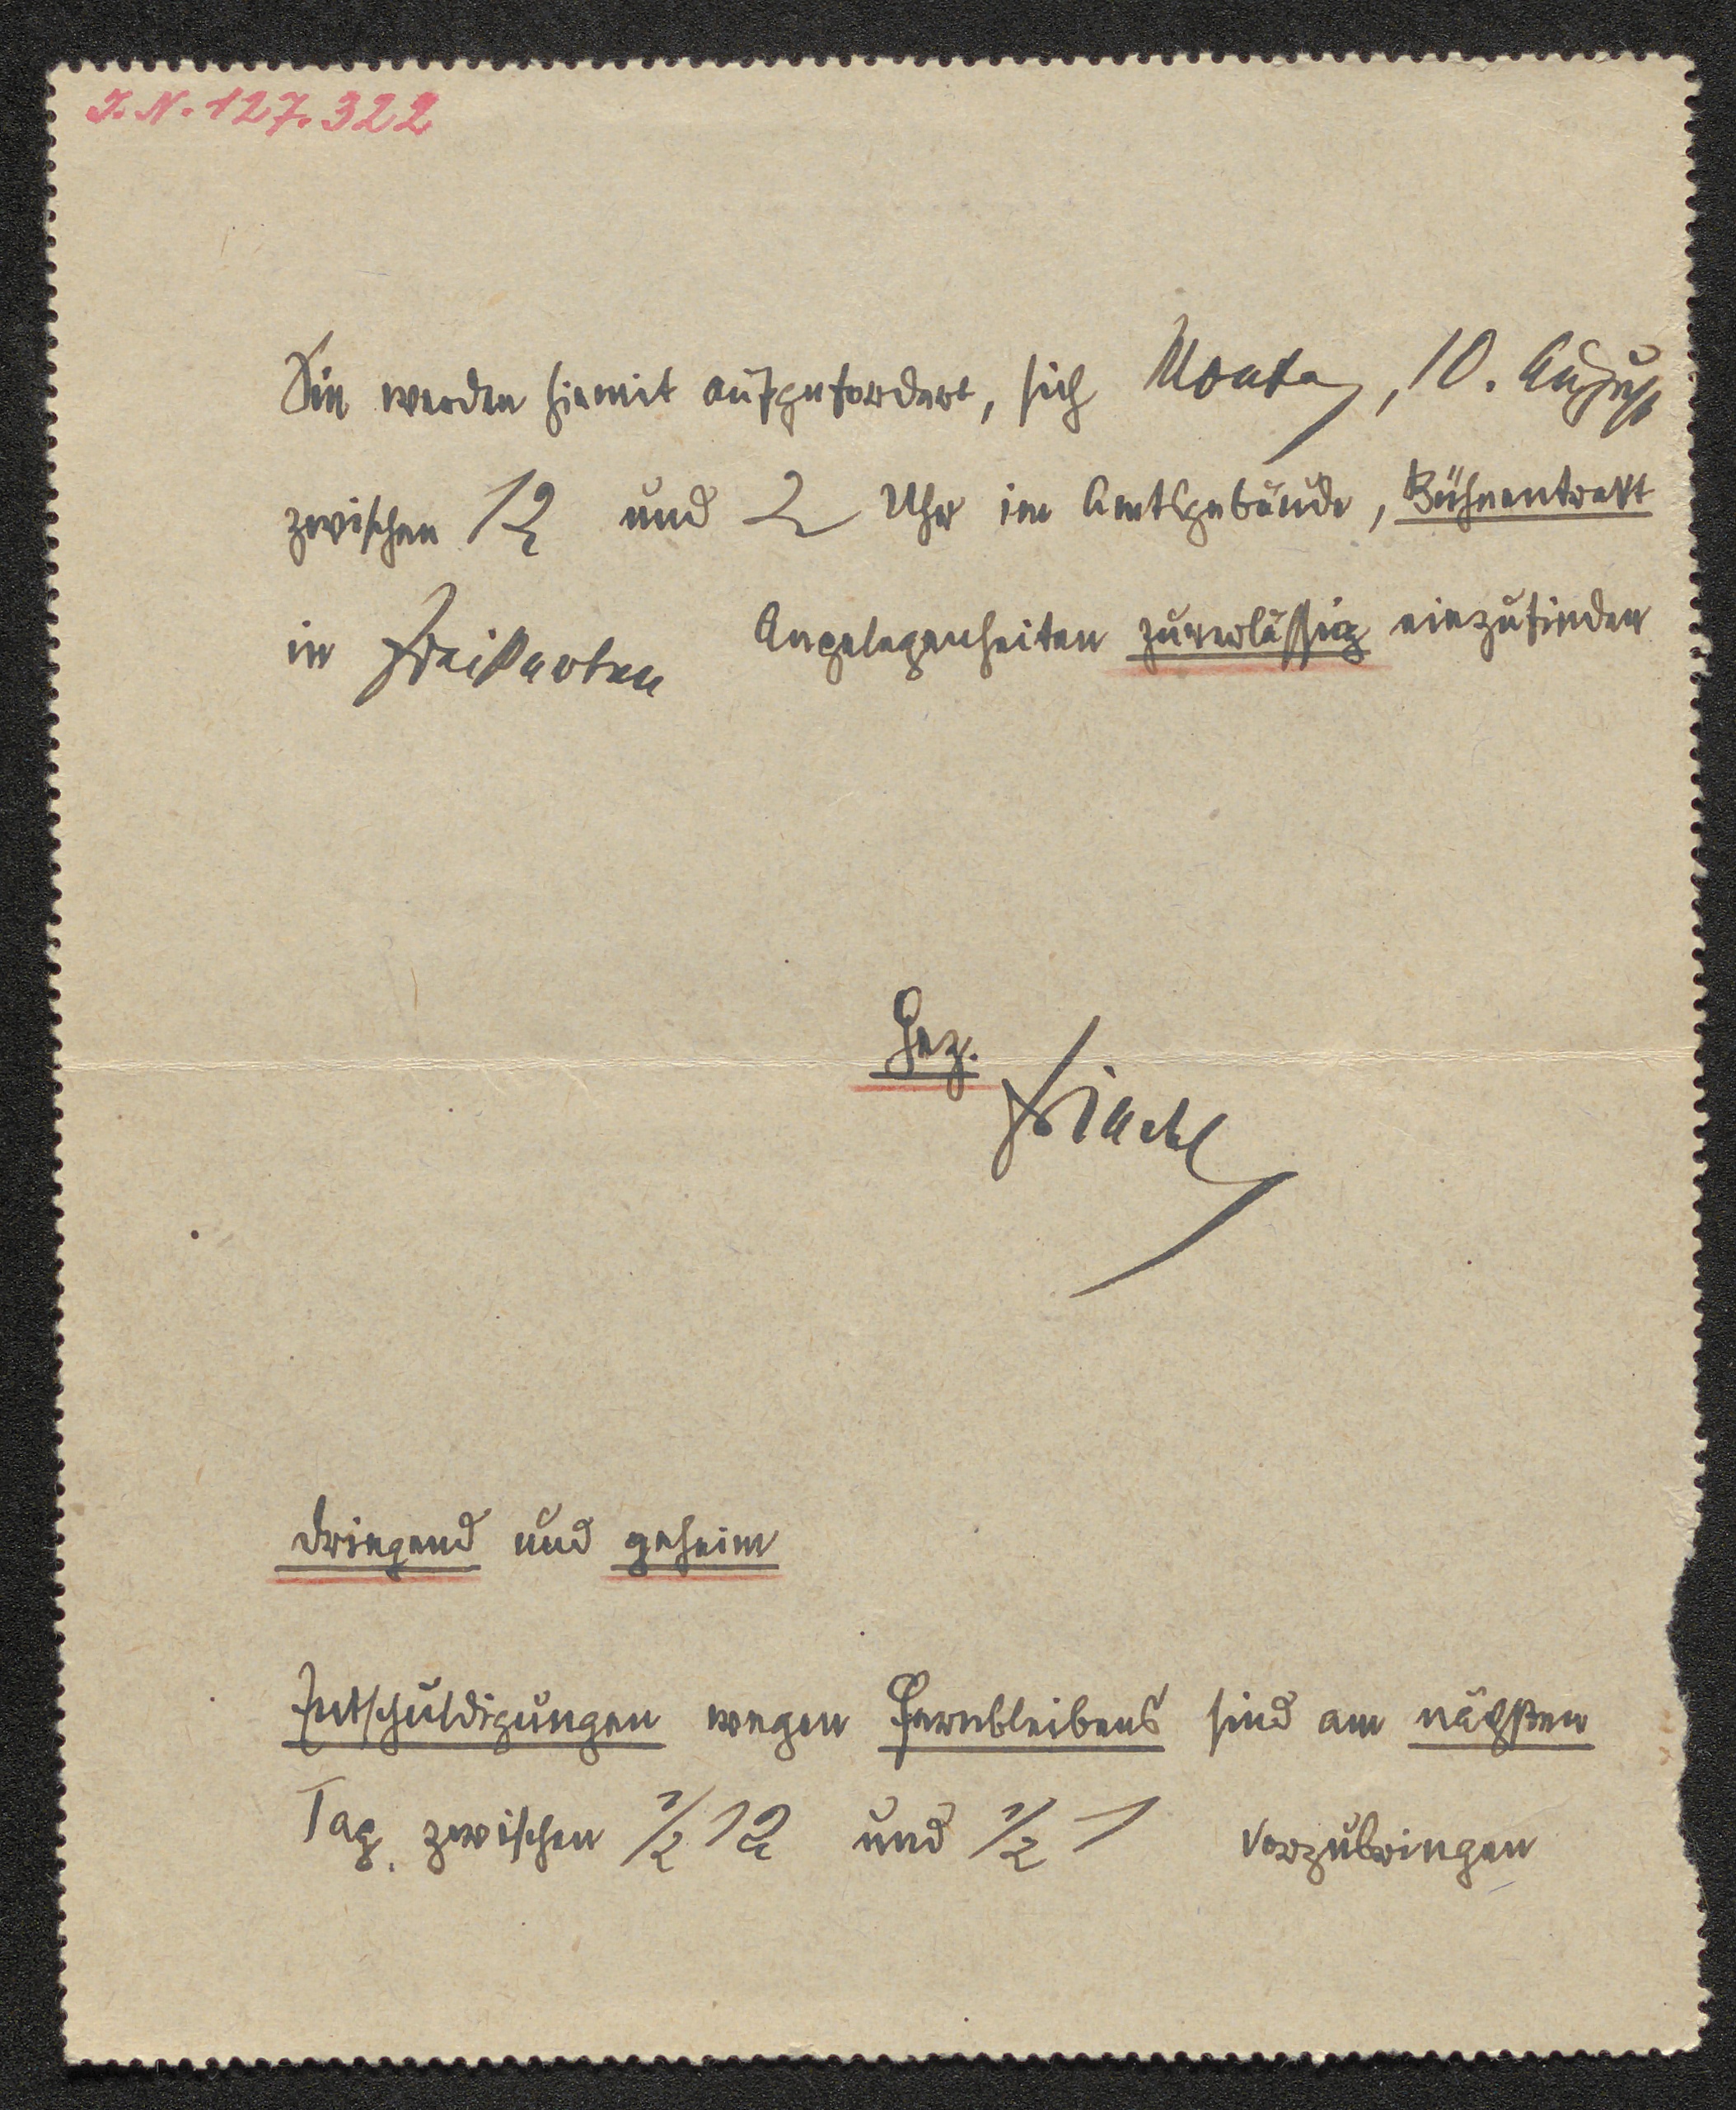 I. N. 127.322
Sie werden hiemit aufgefordert, sich Montag, 10. August
zwischen 12 und 2 Uhr im Amtsgebäude, Bühnentrakt
in Freikarten Angelegenheiten zuverlässig einzufinden
Gez.
dringend und geheim
Entschuldigungen wegen Fernbleibens sind am nächsten
Tag zwischen 1/2 12 und 1/2 1 vorzubringen